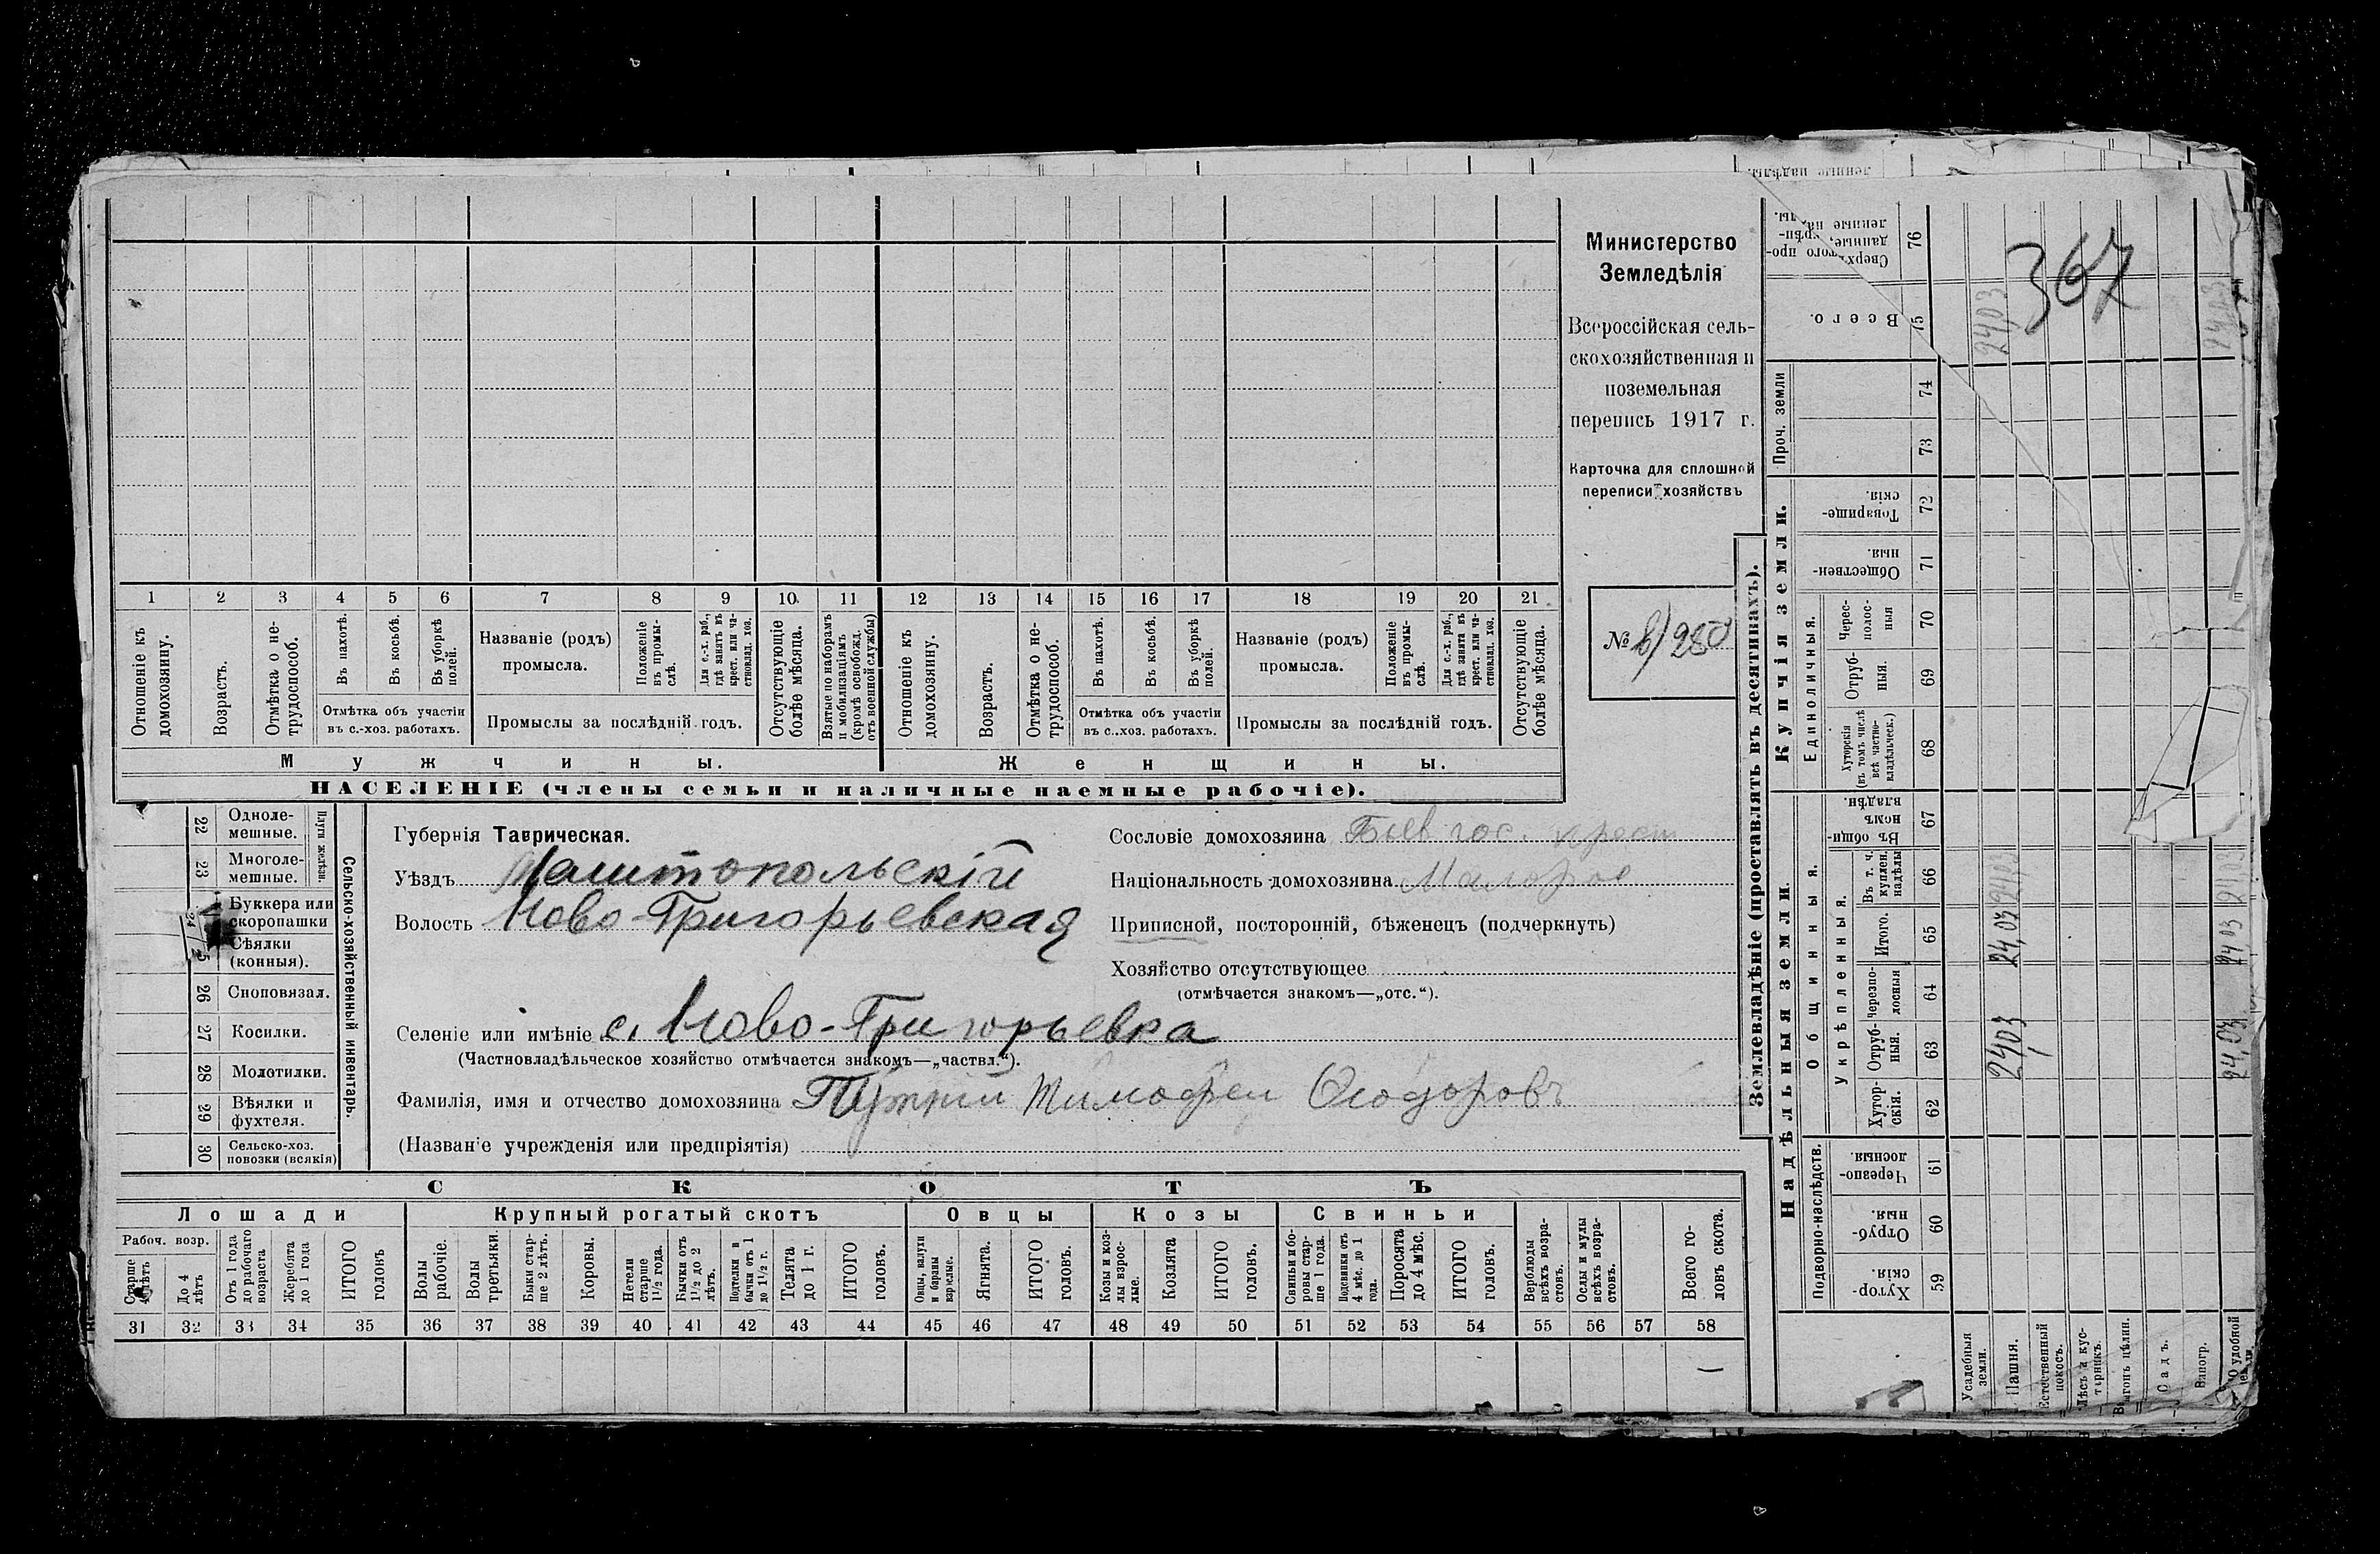 Министерство
Земледѣлія
Всероссійская сель-
скохозяйственная и
поземельная
перепись 1917 г.
Карточка для сплошной
переписи хозяйствъ
№ в/280
1 2 3 4 5 6 7 8 9 10. 11 12 13 14 15 16 17 18 19 20 21
Отношеніе къ домохозяину.
Возрастъ.
Отмѣтка о не-трудоспособ.
Въ пахотѣ.
Въ косьбѣ.
Въ уборкѣ полей.
Отмѣтка объ участіи
въ с.-хоз. работахъ.
Названіе (родъ)
промысла.
Положеніе въ промы-слѣ.
Для с.-х. раб., гдѣ занятъ въ крест. или ча-стновлад. хоз.
Промыслы за послѣдній годъ.
Отсутствующіе болѣе мѣсяца.
Взятые по наборамъ и мобилизаціямъ (кромѣ освобожд. отъ военной службы)
Отношеніе къ домохозяину.
Возрастъ.
Отмѣтка о не-трудоспособ.
Въ пахотѣ.
Въ косьбѣ.
Въ уборкѣ полей.
Отмѣтка объ участіи
въ с..хоз. работахъ.
Названіе (родъ)
промысла.
Положеніе въ промы-слѣ.
Для с.-х. раб., гдѣ занята въ крест. или ча-стновлад. хоз.
Промыслы за послѣдній годъ.
Отсутствующіе болѣе мѣсяца.
Мужчины.
Женщины.
НАСЕЛЕНІЕ (члены семьи и наличные наемные рабочіе).
22 Одноле-мешные.
23 Многоле-мешные.
Плуги желѣзн.
24 Буккера или скоропашки
25 Сѣялки (конныя).
26 Сноповязал.
27 Косилки.
28 Молотилки.
29 Вѣялки и фухтеля.
30 Сельско-хоз. повозки (всякія)
Сельско-хозяйственный инвентарь.
Губернія Таврическая.
Уѣздъ Мелитопольскій
Волость Ново-Григорьевская
Селеніе или имѣніе с. Ново-Григорьевка
(Частновладѣльческое хозяйство отмѣчается знакомъ—„частвл.“).
Фамилія, имя и отчество домохозяина Тимофей Ѳеодоровъ
(Названіе учрежденія или предпріятія)
Сословіе домохозяина Быв гос. крест
Національность домохозяина Малорос
Приписной, посторонній, бѣженецъ (подчеркнуть)
Хозяйство отсутствующее
(отмѣчается знакомъ—„отс.“).
СКОТЪ
Лошади
Крупный рогатый скотъ
Овцы
Козы
Свиньи
Рабоч. возр.
Старше 4 лѣтъ
До 4 лѣтъ
Отъ 1 года до рабочаго возраста
Жеребята до 1 года
ИТОГО головъ
Волы рабочіе.
Волы третьяки.
Быки стар-ше 2 лѣтъ.
Коровы.
Нетели старше 1 1/2 года.
Бычки отъ 1 1/2 до 2 лѣтъ.
Подтелки и бычки отъ 1 до 1 1/2 г.
Телята до 1 г.
ИТОГО головъ.
Овцы, валухи и бараны взрослые.
Ягнята.
ИТОГО головъ.
Козы и коз-лы взрос-лые.
Козлята
ИТОГО головъ.
Свиньи и бо-ровы стар-ше 1 года.
Подсвинки отъ 4 мѣс. до 1 года.
Поросята до 4 мѣс.
ИТОГО головъ.
Верблюды всѣхъ возра-стовъ.
Ослы и мулы всѣхъ возра-стовъ.
Всего го-ловъ скота.
31 32 33 34 35 36 37 38 39 40 41 42 43 44 45 46 47 48 49 50 51 52 53 54 55 56 57 58
—
Землевладѣніе (проставлять въ десятинахъ).
Надѣльныя земли.
Купчія земли.
Проч. земли
Подворно-наслѣдств.
Общинныя.
Укрѣпленныя.
Единоличныя.
Хутор-скія. 59
Отруб-ныя. 60
Черезпо-лосныя. 61
Хутор-скія. 62
Отруб-ныя. 63
Черезпо-лосныя 64
Итого. 65
Въ т. ч. куплен. надѣлы 66
Въ общи-номъ владѣн. 67
Хуторскія (въ томъ числѣ всѣ частно-владѣльческ.) 68
Отруб-ныя. 69
Черес-полос-ныя 70
Обществен-ныя. 71
Товарище-скія. 72
73
74
Всего. 75
76
Усадебныя земли.
Пашня.
24,03 24,03 2403 2403
Естественный покосъ.
Лѣсъ и кус-тарникъ.
Выгонъ цѣлин.
Садъ.
Виногр.
удобной
24,03 2403 2403 2403
367